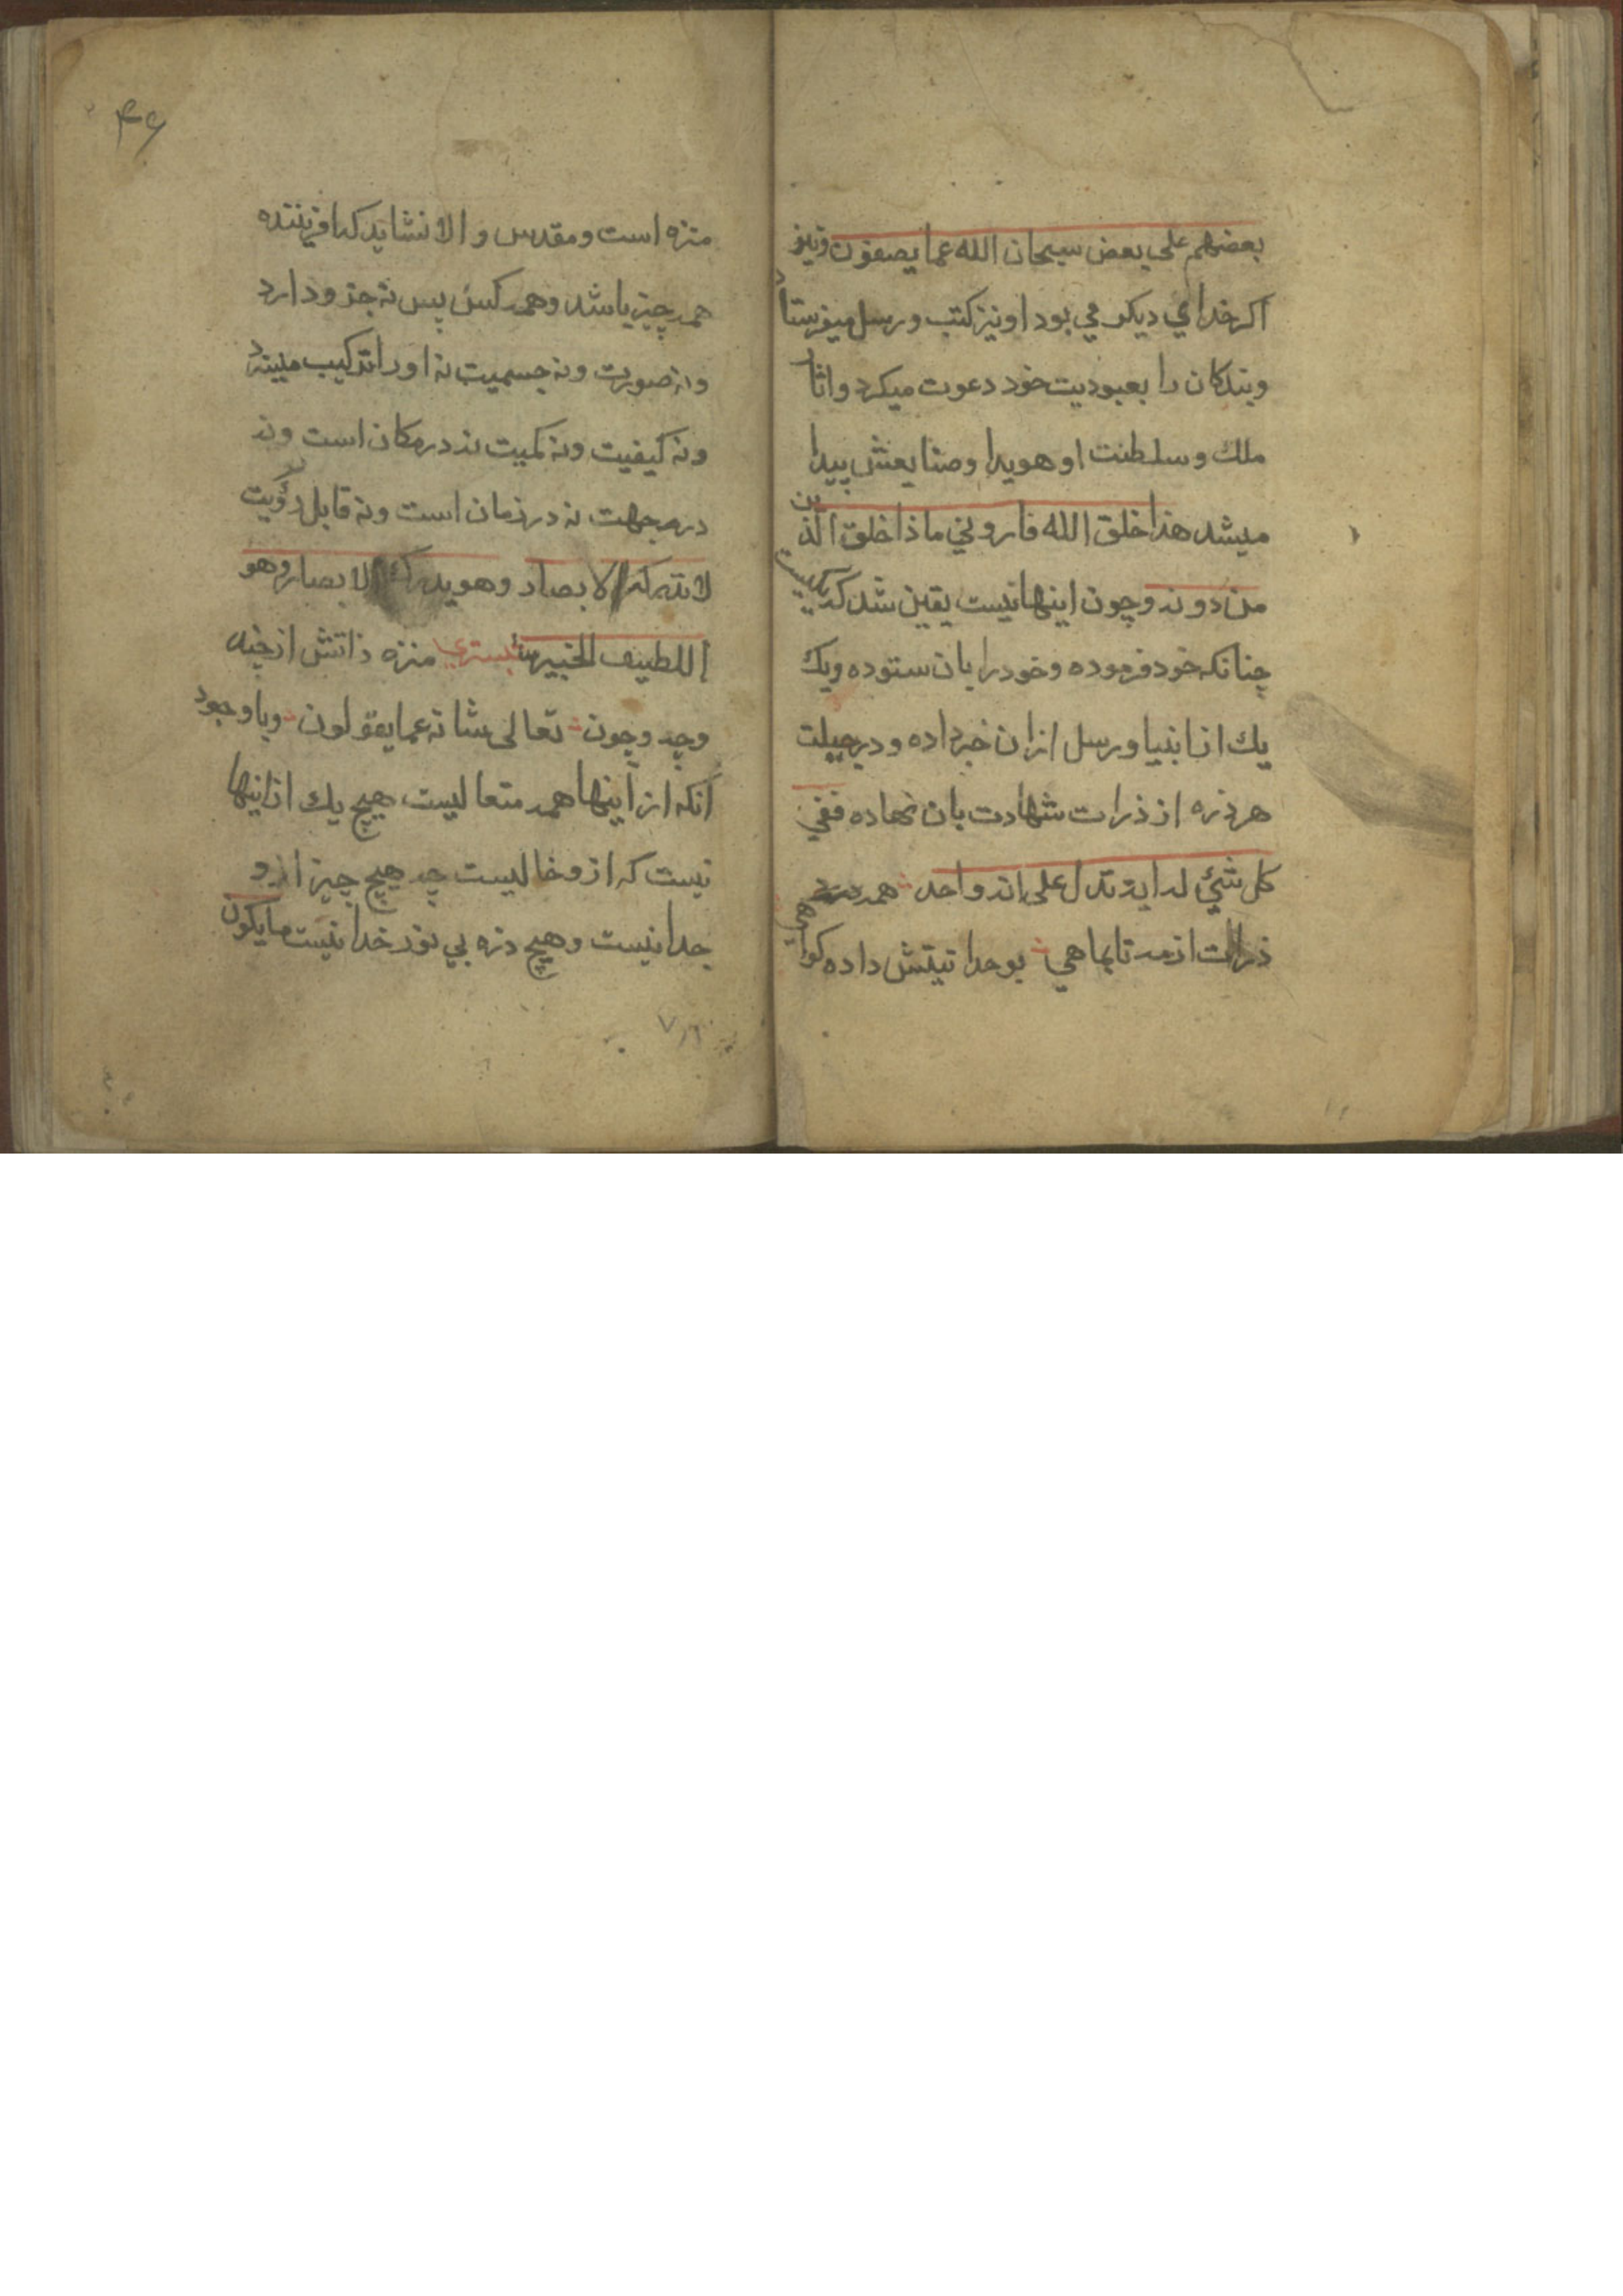 بعضهم علی بعض سبحان الله عما یصفون ونیز
اکر خدای دیکر می بود او نیز کتب و رسل میفرستاد
وبندکان را بعبودیت خود دعوت میکرد واثار
ملك وسلطنت او هویدا وصنایعش پیدا
میشد هذا خلق الله فارونی ماذا خلق الذین
من دونه وچون اینها نیست یقین شد که یکیست
چنانکه خود فرموده وخود را بان ستوده ویك
یك از انبیا ورسل ازان خبر داده ودر جبلت
هر ذره از ذرات شهادت بان نهاده ففی
کل شئ له ایة تدل علی انه واحد همه
ذرات از مه تا بماهی بوحدانیتش داده کواهی
۴۶
منزه است ومقدس والا نشاید که افریننده
همه چیز باشد وهمه کس پس نه جزو دارد
ونه صورت ونه جسمیت نه اورا ترکیب میزیبد
ونه کیفیت ونه کمیت نه در مکان است ونه
در جهت نه در زمان است ونه قابل رؤیت
لا تدرکه الابصار وهو یدرك الابصار وهو
اللطیف الخبیر شبستری منزه ذاتش از چند
وچه وچون تعالی شانه عما یقولون وبا وجود
انکه از اینها همه متعالیست هیچ یك از اینها
نیست که ازو خالیست چه هیچ چیز ازو
جدا نیست وهیچ ذره بی نور خدا نیست ما یکون